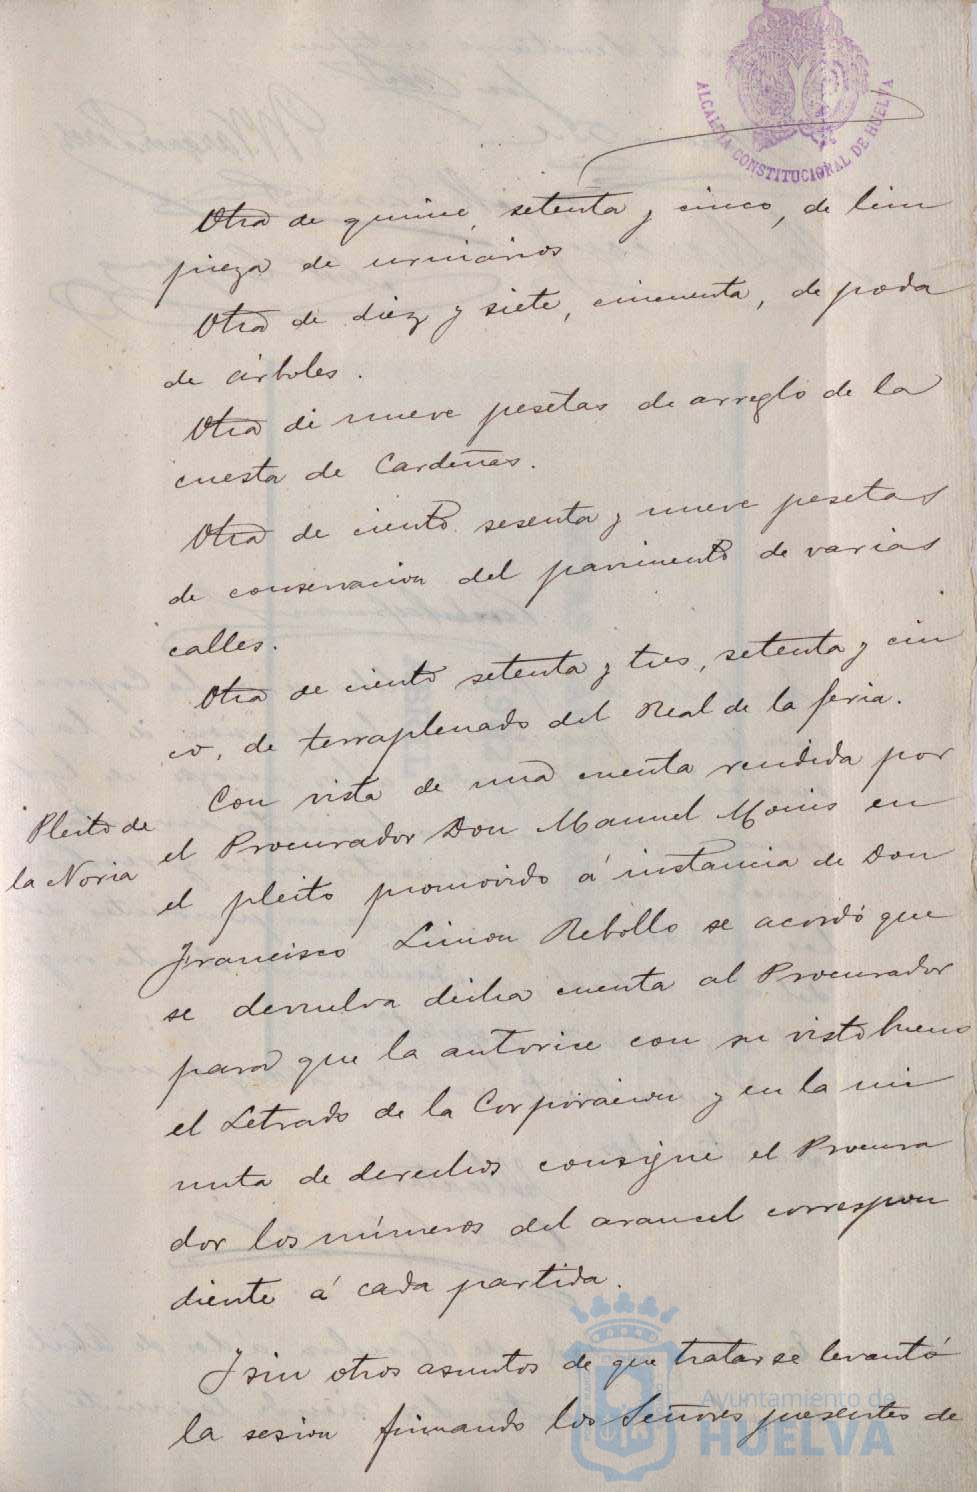 ALCALDIA CONSTITUCIONAL DE HUELVA
Otra de quince, setenta y cinco, de lim
pieza de urinarios
Otra de diez y siete, cincuenta, de poda
de árboles.
Otra de nueve pesetas de arreglo de la
cuesta de Cardeñas.
Otra de ciento sesenta y nueve pesetas
de conservacion del pavimento de varias
calles.
Otra de ciento setenta y tres, setenta y cin
co, de terraplenado del Real de la feria.
Pleito de
la Noria
Con vista de una cuenta rendida por
el Procurador Don Manuel Monis en
el pleito promovido á instancia de Don
Francisco Limon Rebollo se acordó que
se devuelva dicha cuenta al Procurador
para que la autorice con su visto bueno
el Letrado de la Corporacion y en la mi
nuta de derechos consigne el Procura
dor los números del arancel correspon
diente á cada partida.
Y sin otros asuntos de que tratar se levantó
la sesion firmando los Señores presentes de
Ayuntamiento de
HUELVA